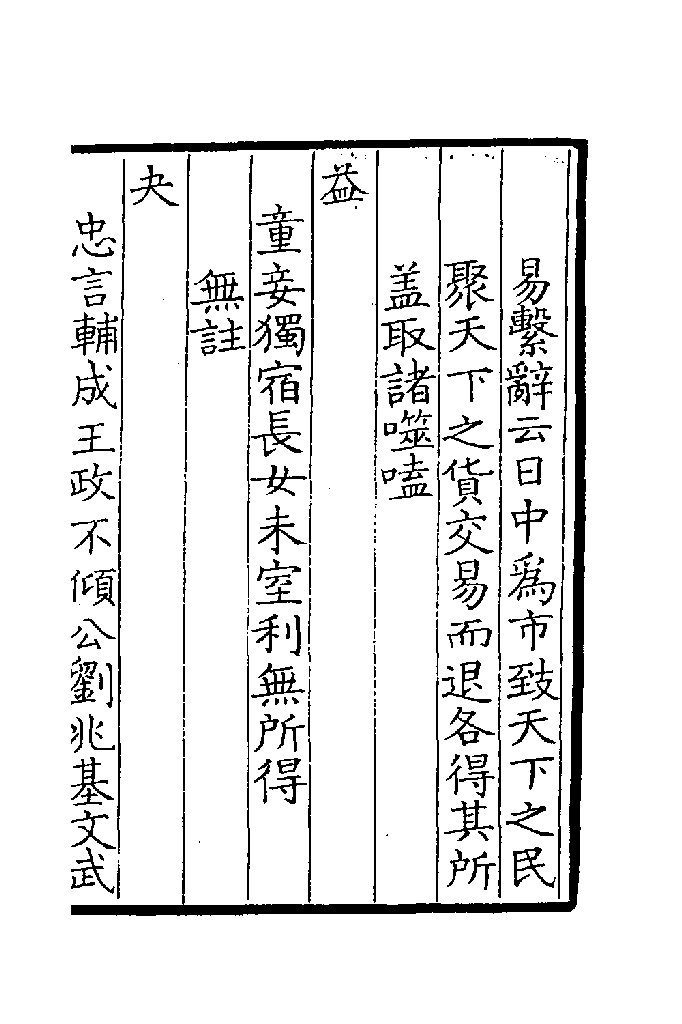 易繫辭云日中爲市致天下之民
聚天下之貨交易而退各得其所
盖取諸噬嗑
益
童妾獨宿長女未室利無所得
無註
夬
忠言輔成王政不傾公劉兆基文武